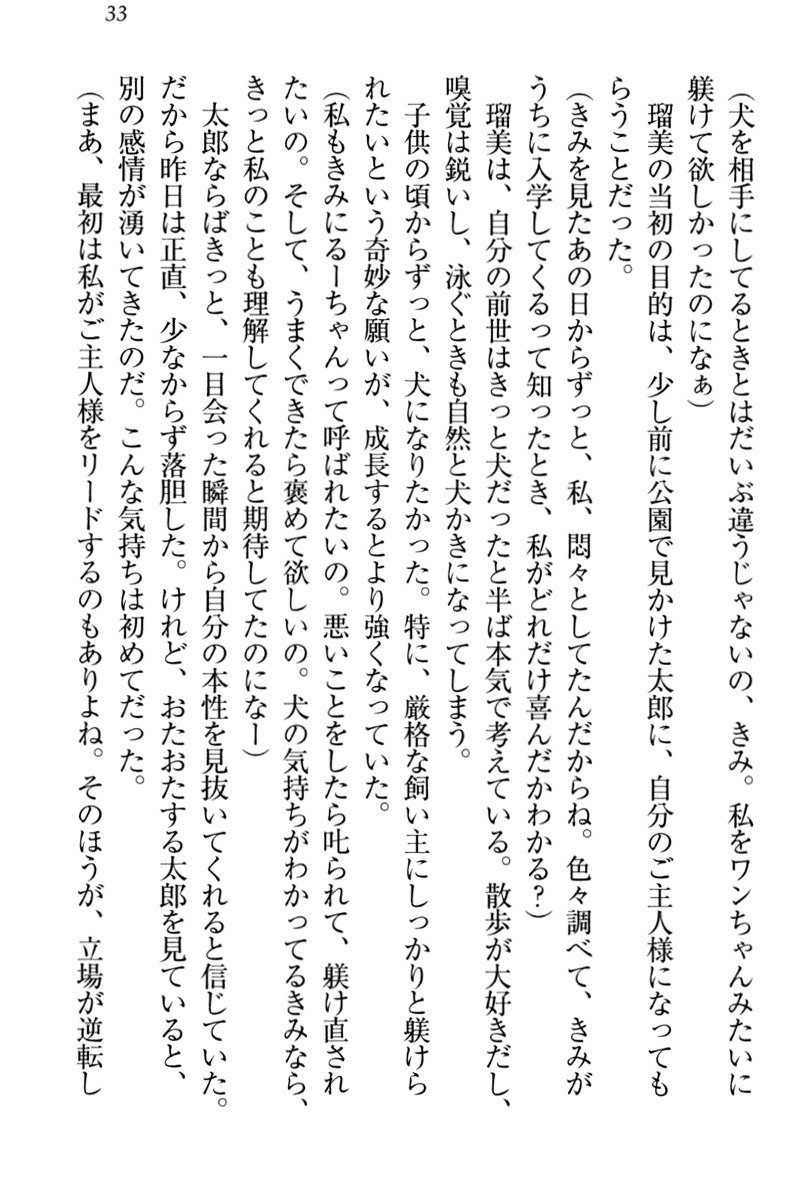 33
(犬を相手にしてるときとはだいぶ違うじゃないの、きみ。私をワンちゃんみたいに
躾けて欲しかったのになぁ)
　瑠美の当初の目的は、少し前に公園で見かけた太郎に、自分のご主人様になっても
らうことだった。
(きみを見たあの日からずっと、私、悶々としてたんだからね。色々調べて、きみが
うちに入学してくるって知ったとき、私がどれだけ喜んだかわかる?)
　瑠美は、自分の前世はきっと犬だったと半ば本気で考えている。散歩が大好きだし、
嗅覚は鋭いし、泳ぐときも自然と犬かきになってしまう。
　子供の頃からずっと、犬になりたかった。特に、厳格な飼い主にしっかりと躾けら
れたいという奇妙な願いが、成長するとより強くなっていた。
(私もきみにるーちゃんって呼ばれたいの。悪いことをしたら叱られて、躾け直され
たいの。そして、うまくできたら褒めて欲しいの。犬の気持ちがわかってるきみなら、
きっと私のことも理解してくれると期待してたのになー)
　太郎ならばきっと、一目会った瞬間から自分の本性を見抜いてくれると信じていた。
だから昨日は正直、少なからず落胆した。けれど、おたおたする太郎を見ていると、
別の感情が湧いてきたのだ。こんな気持ちは初めてだった。
(まあ、最初は私がご主人様をリードするのもありよね。そのほうが、立場が逆転し